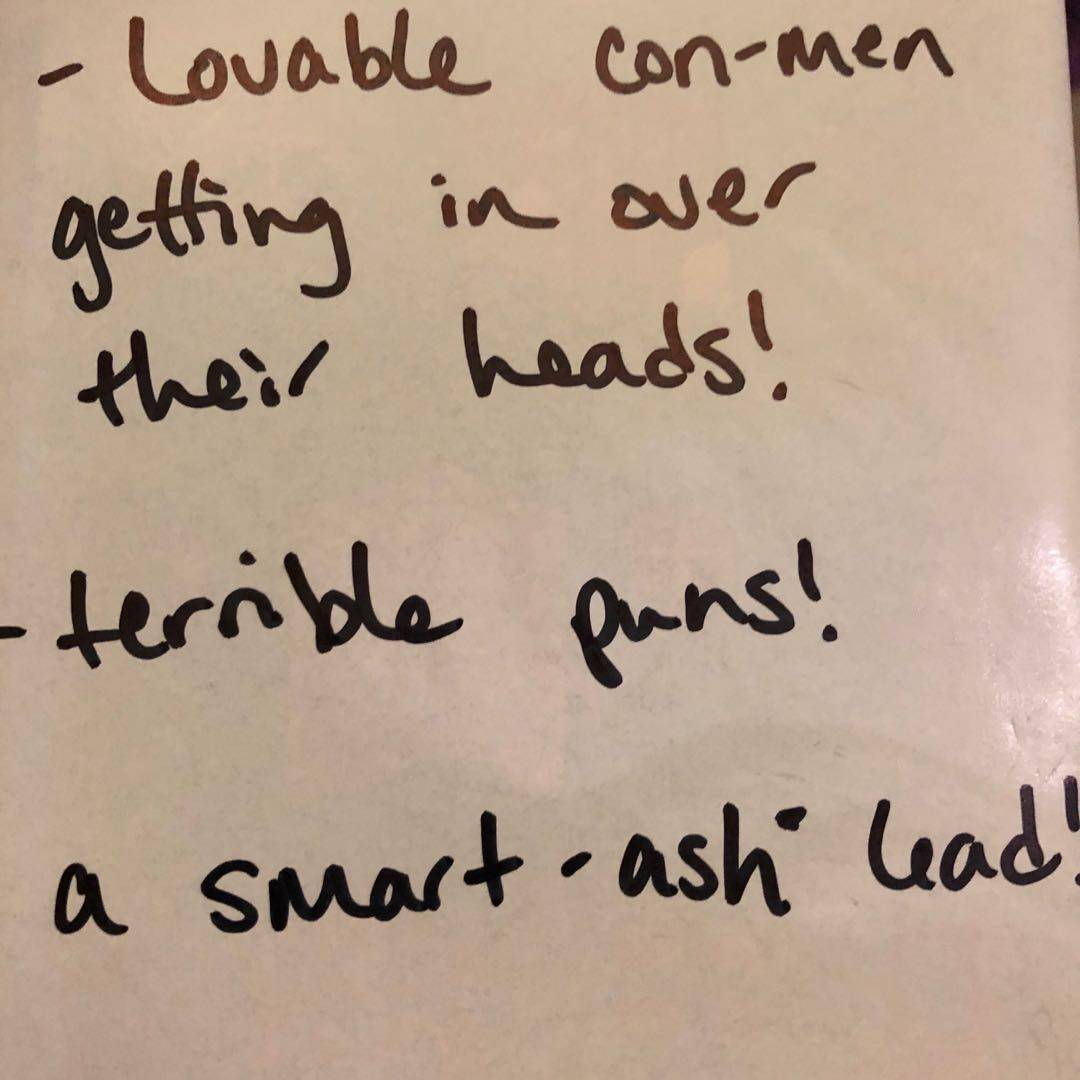 - Lovable con-men
getting in over
their heads!
- terrible puns!
a smart-ash lead!